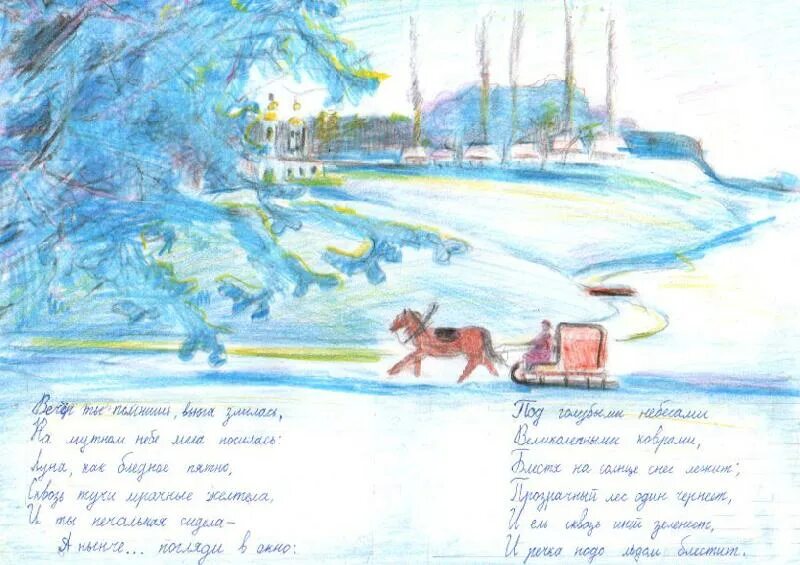 Вечор ты помнишь, вьюга злилась,
На мутном небе мгла носилась:
Луна, как бледное пятно,
Сквозь тучи мрачные желтела,
И ты печальная сидела-
А нынче... погляди в окно:
Под голубыми небесами
Великолепными коврами,
Блестя на солнце снег лежит;
Прозрачный лес один чернеет,
И ель сквозь иней зеленеет,
И речка подо льдом блестит.